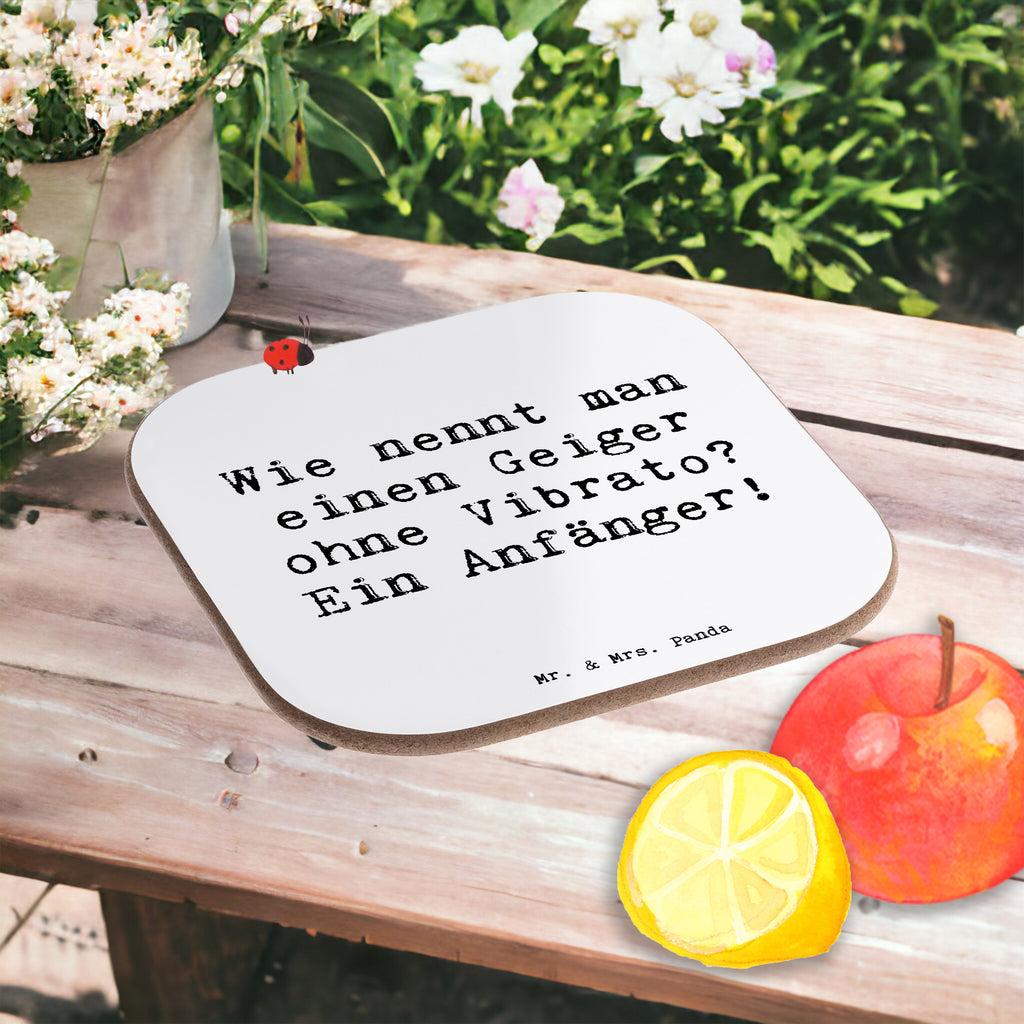 Wie nennt man
einen Geiger
ohne Vibrato?
Ein Anfänger!
Mr. & Mrs. Panda